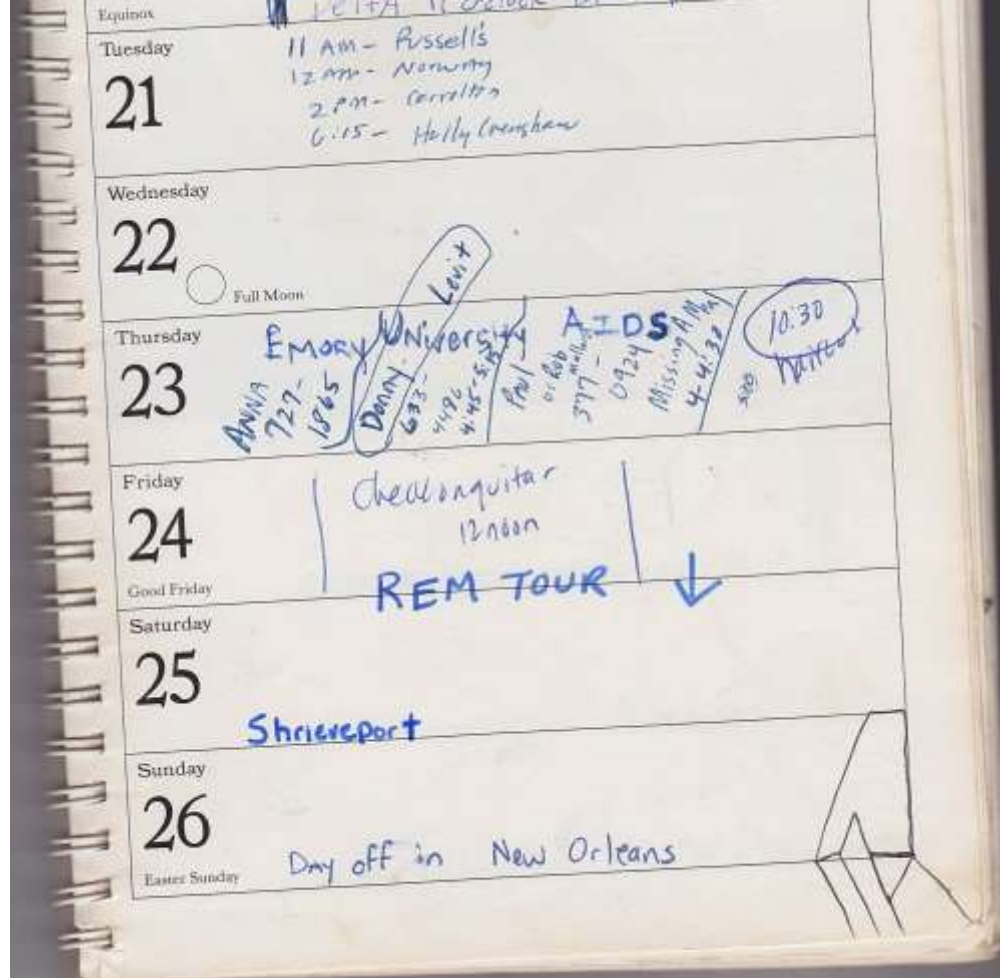 Equinox
Tuesday
21
11 AM - Russell's
12 AM - Norway
2 PM - Carrollton
6:15 - Holly Crenshaw
Wednesday
22
Full Moon
Thursday
23
EMORY UNIVERSITY AIDS
ANNA
727-
1865
Donny Levit
633-
4496
4:45-5:15
Paul
or Rob
377-
0924
Missing A Meal
4-4:30
10:30
Friday
24
Good Friday
Check on guitar
12 noon
REM TOUR
Saturday
25
Shrieveport
Sunday
26
Easter Sunday
Day off in New Orleans